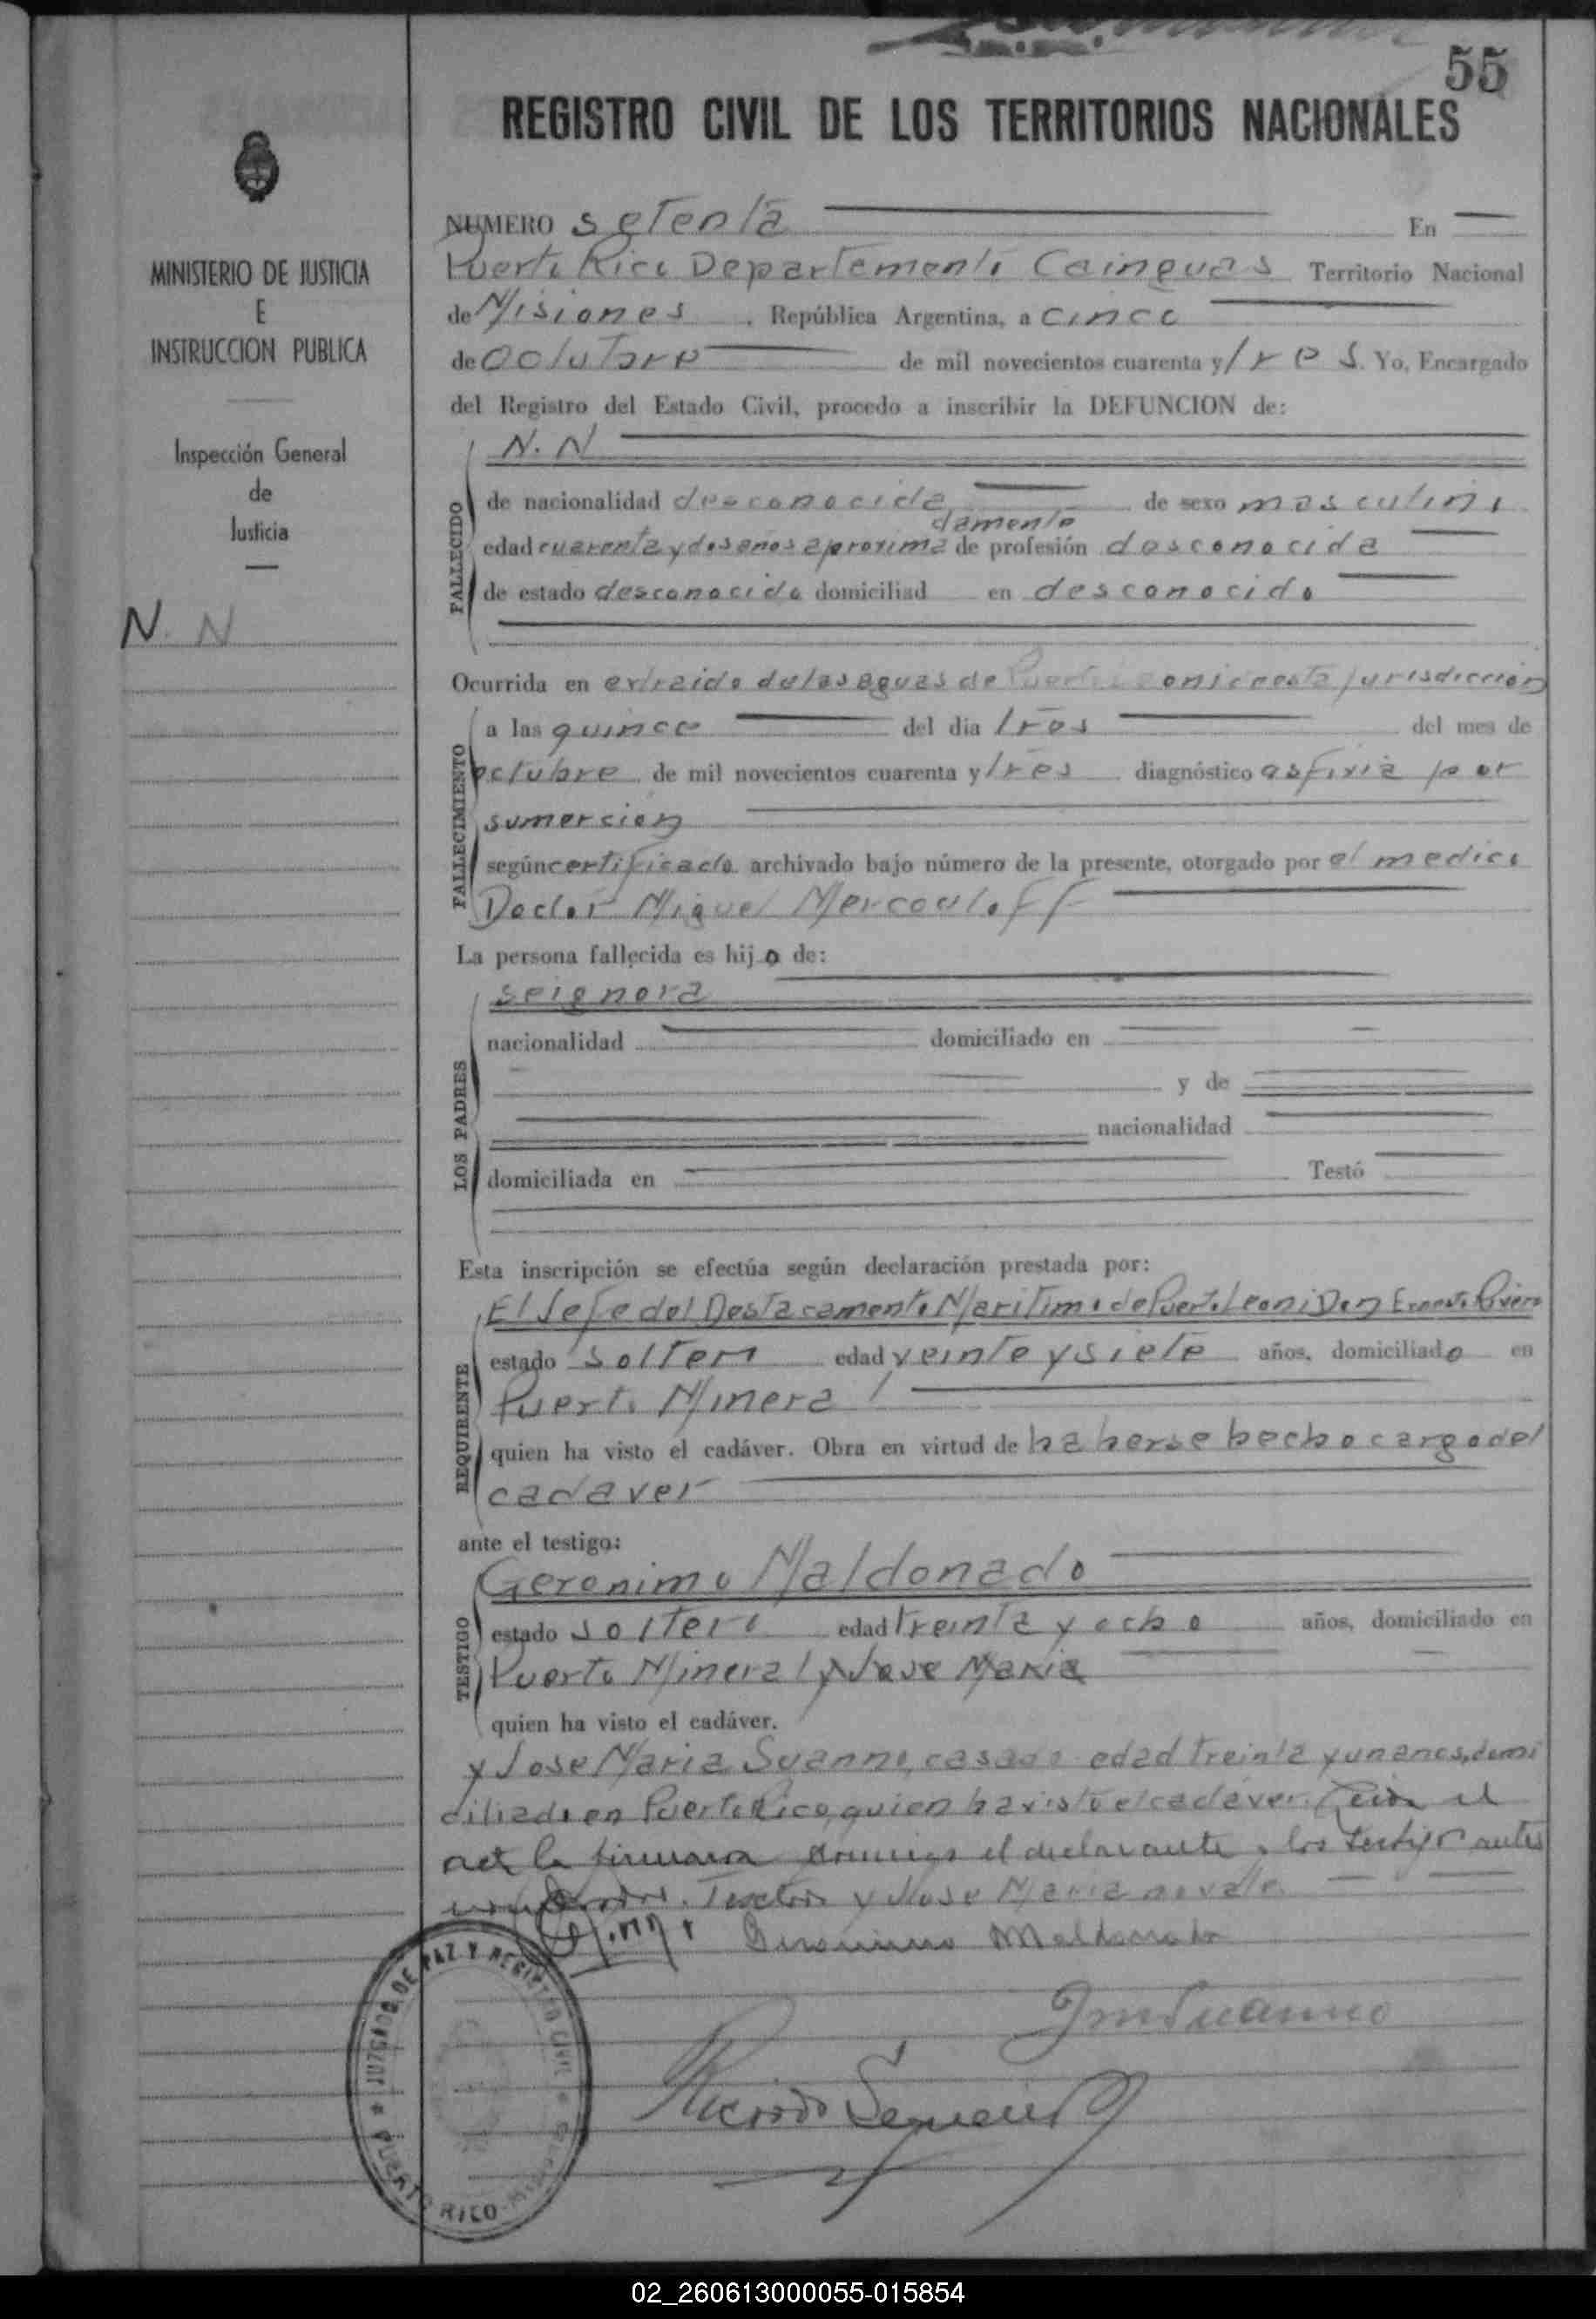 55
REGISTRO CIVIL DE LOS TERRITORIOS NACIONALES
MINISTERIO DE JUSTICIA
E
INSTRUCCION PUBLICA
Inspección General
de
Justicia
N. N
NUMERO setenta En
Puerto Rico Departamento Cainguas Territorio Nacional
de Misiones, República Argentina, a cinco
de Octubre de mil novecientos cuarenta y tres. Yo, Encargado
del Registro del Estado Civil, procedo a inscribir la DEFUNCION de:
FALLECIDO
N. N
de nacionalidad desconocida de sexo masculino
damente
edad cuarenta y dos años aproxima de profesión desconocida
de estado desconocido domiciliad en desconocido
Ocurrida en extraido de las aguas de Puerto Leoni de esta jurisdiccion
FALLECIMIENTO
a las quince del día tres del mes de
octubre de mil novecientos cuarenta y tres diagnóstico asfixia por
sumercion
según certificado archivado bajo número de la presente, otorgado por el medico
Doctor Miguel Mercouloff
La persona fallecida es hijo de:
LOS PADRES
se ignora
nacionalidad domiciliado en
y de
nacionalidad
domiciliada en Testó
Esta inscripción se efectúa según declaración prestada por:
REQUIRENTE
El Jefe del Destacamento Maritimo de Puerto Leoni Don Ernesto Rivero
estado soltero edad veinte y siete años, domiciliado en
Puerto Mineral
quien ha visto el cadáver. Obra en virtud de haberse hecho cargo del
cadaver
ante el testigo:
TESTIGO
Geronimo Maldonado
estado soltero edad treinta y ocho años, domiciliado en
Puerto Mineral y Jose Maria
quien ha visto el cadáver.
y Jose Maria Suanno, casado edad treinta y un anos, domi
ciliado en Puerto Rico, quien ha visto el cadaver. Leida el
acta la firmaron conmigo el declarante y los testigos antes
Testado y Jose Maria no vale.
Geronimo Maldonado
JM Suanno
JUZGADO DE PAZ Y REGISTRO CIVIL
PUERTO RICO
02_260613000055-015854